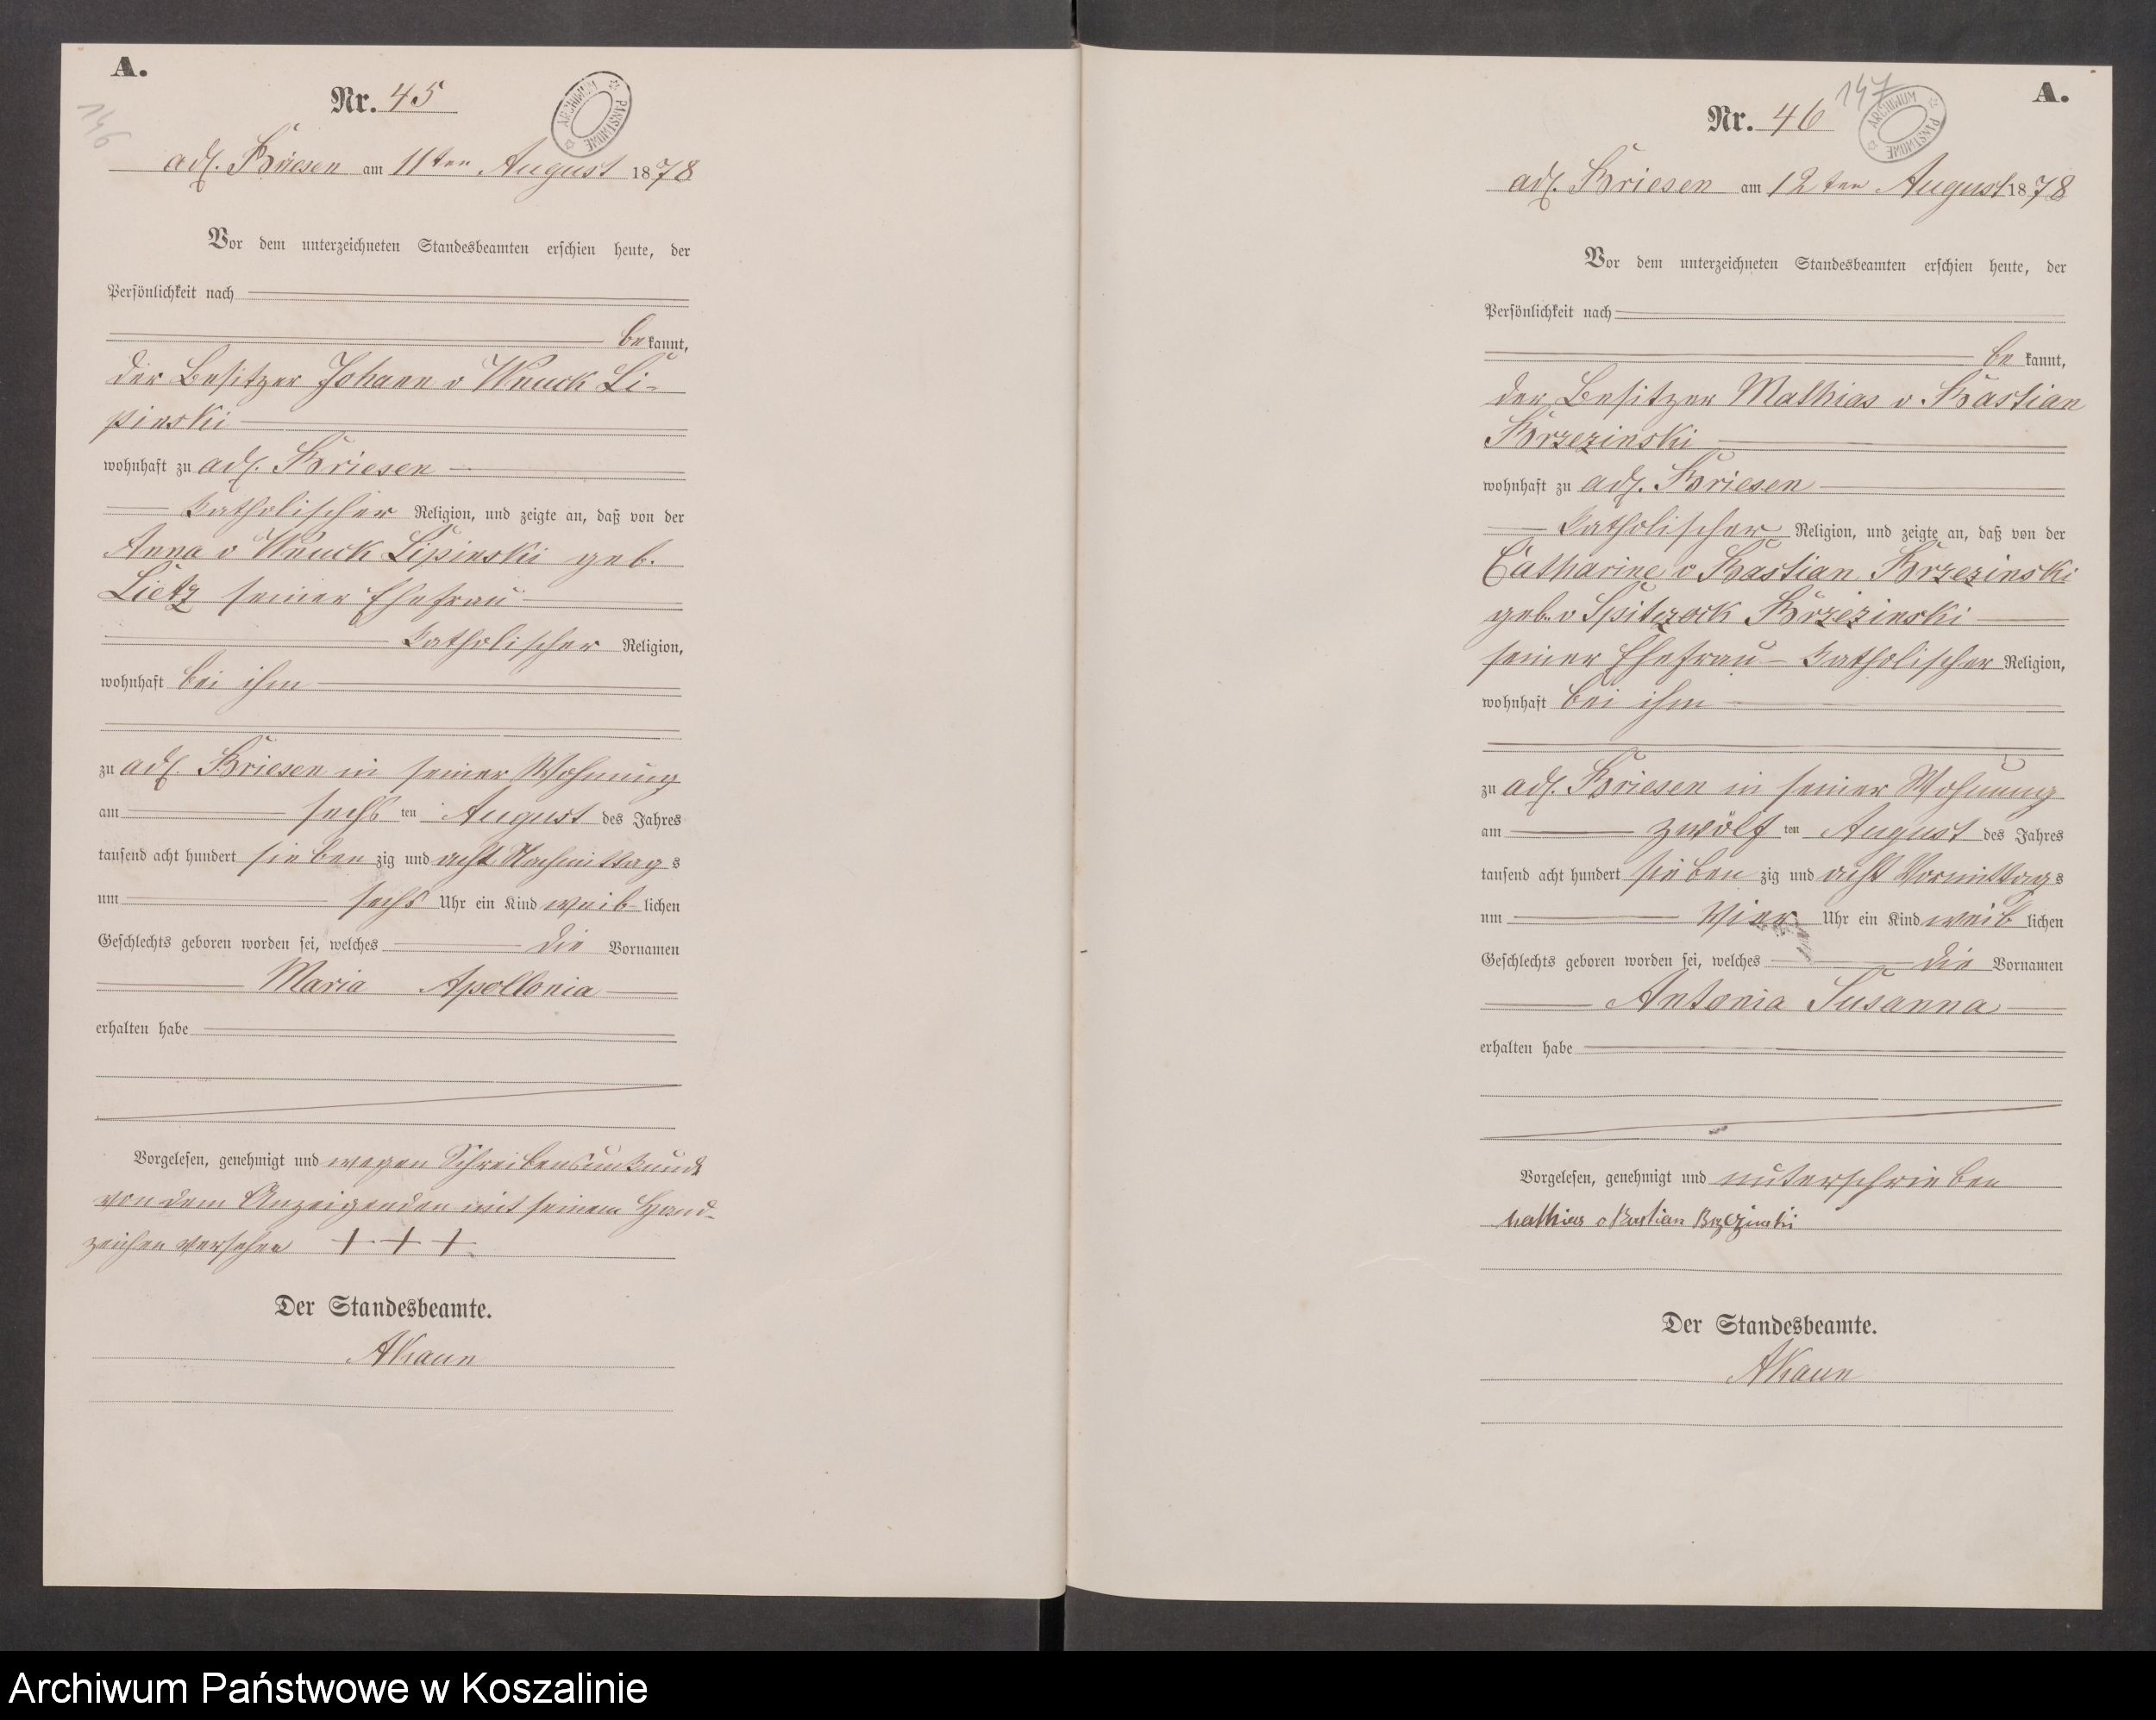 A.
146
Nr. 45
ARCHIWUM PAŃSTWOWE
adl. Briesen am 11ten August 1878
Vor dem unterzeichneten Standesbeamten erschien heute, der
Persönlichkeit nach
be kannt,
der Besitzer Johann v Wnuck Li-
pinski
wohnhaft zu adl. Briesen
katholischer Religion, und zeigte an, daß von der
Anna v Wnuck Lipinski geb.
Lietz seiner Ehefrau
katholischer Religion,
wohnhaft bei ihm
zu adl. Briesen in seiner Wohnung
am sechs ten August des Jahres
tausend acht hundert sieben zig und acht Nachmittag s
um sechs Uhr ein Kind weib lichen
Geschlechts geboren worden sei, welches die Vornamen
Maria Apollonia
erhalten habe
Vorgelesen, genehmigt und wegen Schreibensunkunde
von dem Anzeigenden mit seinem Hand-
zeichen versehen +++
Der Standesbeamte.
AKaun
A.
147
Nr. 46
ARCHIWUM PAŃSTWOWE
adl. Briesen am 12ten August 1878
Vor dem unterzeichneten Standesbeamten erschien heute, der
Persönlichkeit nach
be kannt,
der Besitzer Mathias v Bastian
Brzezinski
wohnhaft zu adl. Briesen
katholischer Religion, und zeigte an, daß von der
Catharine v Bastian Brzezinski
geb. v Spitczock Brzezinski
seiner Ehefrau katholischer Religion,
wohnhaft bei ihm
zu adl. Briesen in seiner Wohnung
am zwölf ten August des Jahres
tausend acht hundert sieben zig und acht Vormittag s
um Vier Uhr ein Kind weib lichen
Geschlechts geboren worden sei, welches die Vornamen
Antonia Susanna
erhalten habe
Vorgelesen, genehmigt und unterschrieben
Mathias v Bastian Brzezinski
Der Standesbeamte.
AKaun
Archiwum Państwowe w Koszalinie